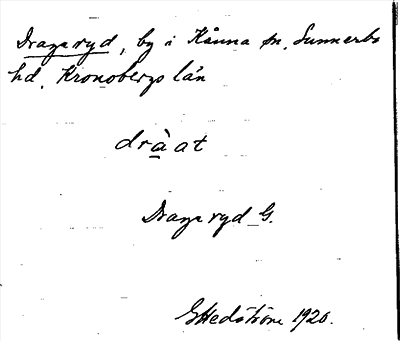 Drageryd, by i Kånna sn, Sunnerbo
hd, Kronobergs län
dràat
Drageryd G.
G Hedström 1926.